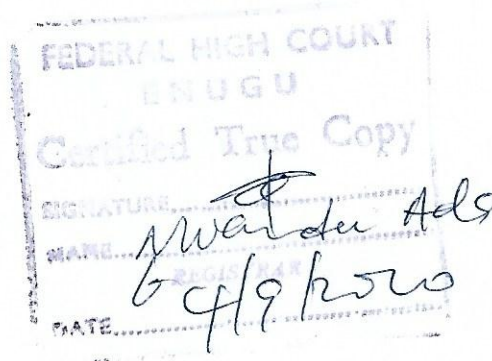 FEDERAL HIGH COURT
ENUGU
Certified True Copy
SIGNATURE....................
NAME....................
REGISTRAR
DATE.................... 4/9/2020